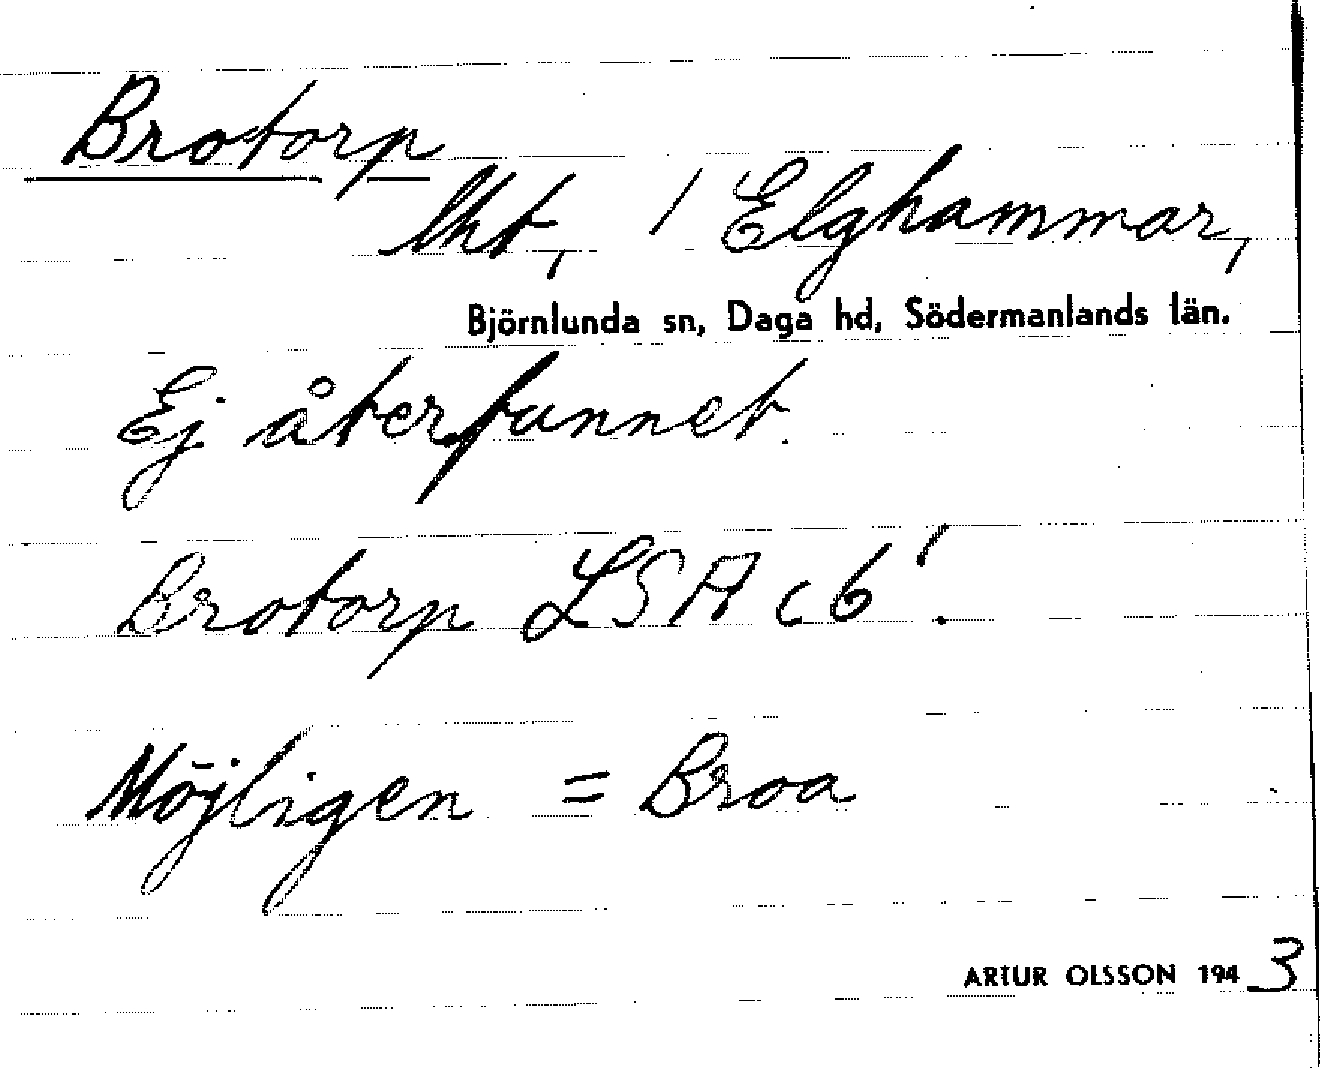 Brotorp
lht, / Elghammar,
Björnlunda sn, Daga hd, Södermanlands län.
Ej återfunnet.
Brotorp LSA c6'.
Möjligen = Broa
ARTUR OLSSON 1943